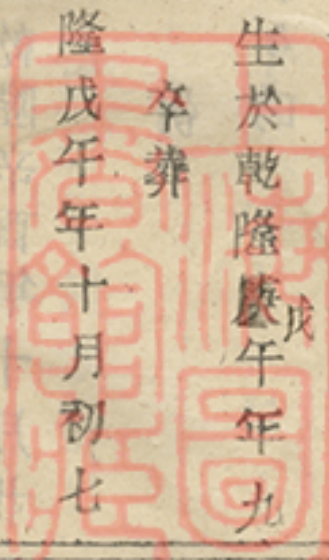 生於乾隆庚戊午年九
卒葬
隆戊午年十月初七